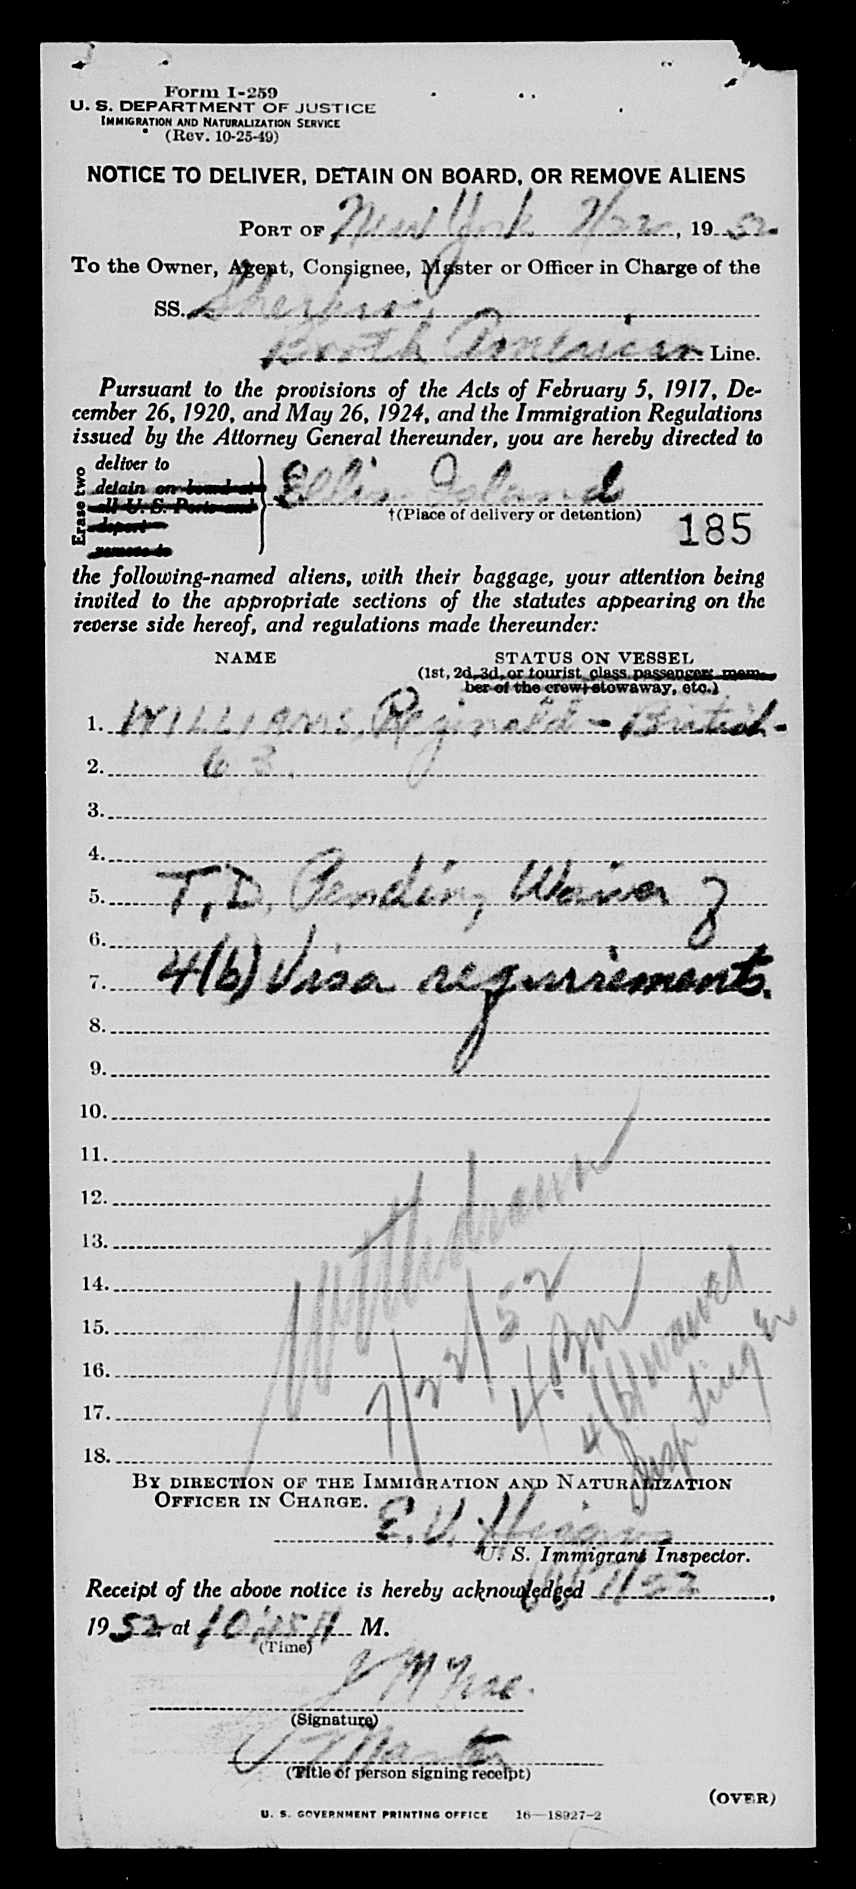 Form I-259
U. S. DEPARTMENT OF JUSTICE
IMMIGRATION AND NATURALIZATION SERVICE
(Rev. 10-25-49)
NOTICE TO DELIVER, DETAIN ON BOARD, OR REMOVE ALIENS
PORT OF New York 7/22, 1952
To the Owner, Agent, Consignee, Master or Officer in Charge of the
SS.
Booth American Line.
Pursuant to the provisions of the Acts of February 5, 1917, De-
cember 26, 1920, and May 26, 1924, and the Immigration Regulations
issued by the Attorney General thereunder, you are hereby directed to
Erase two
deliver to
detain on board at
all U. S. Ports and
deport
remove to
Ellis Island
†(Place of delivery or detention)
185
the following-named aliens, with their baggage, your attention being
invited to the appropriate sections of the statutes appearing on the
reverse side hereof, and regulations made thereunder:
NAME STATUS ON VESSEL
(1st, 2d, 3d, or tourist class passenger, mem-
ber of the crew, stowaway, etc.)
1. WILLIAMS, Reginald - British -
2. 63.
3.
4.
5. T.D. Pending Waiver of
6.
7. 4(b) Visa requirements.
8.
9.
10.
11.
12.
13.
14.
15.
16.
17.
18.
Withdrawn
7/22/52
4 PM
4(b) waived
BY DIRECTION OF THE IMMIGRATION AND NATURALIZATION
OFFICER IN CHARGE.
E. V.
U. S. Immigrant Inspector.
Receipt of the above notice is hereby acknowledged 7/22,
1952 at 10:45 A M.
(Time)
(Signature)
Master
(Title of person signing receipt)
(OVER)
U. S. GOVERNMENT PRINTING OFFICE 16—18927-2